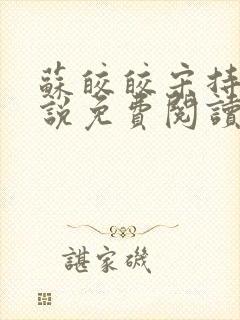 蘇皎皎宋持
說免費閱讀
諶家磯